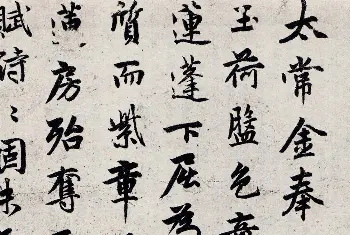 太常金奉
玉荷盤色
蓮蓬下屈
質而紫章
房殆奪
賦詩〻固